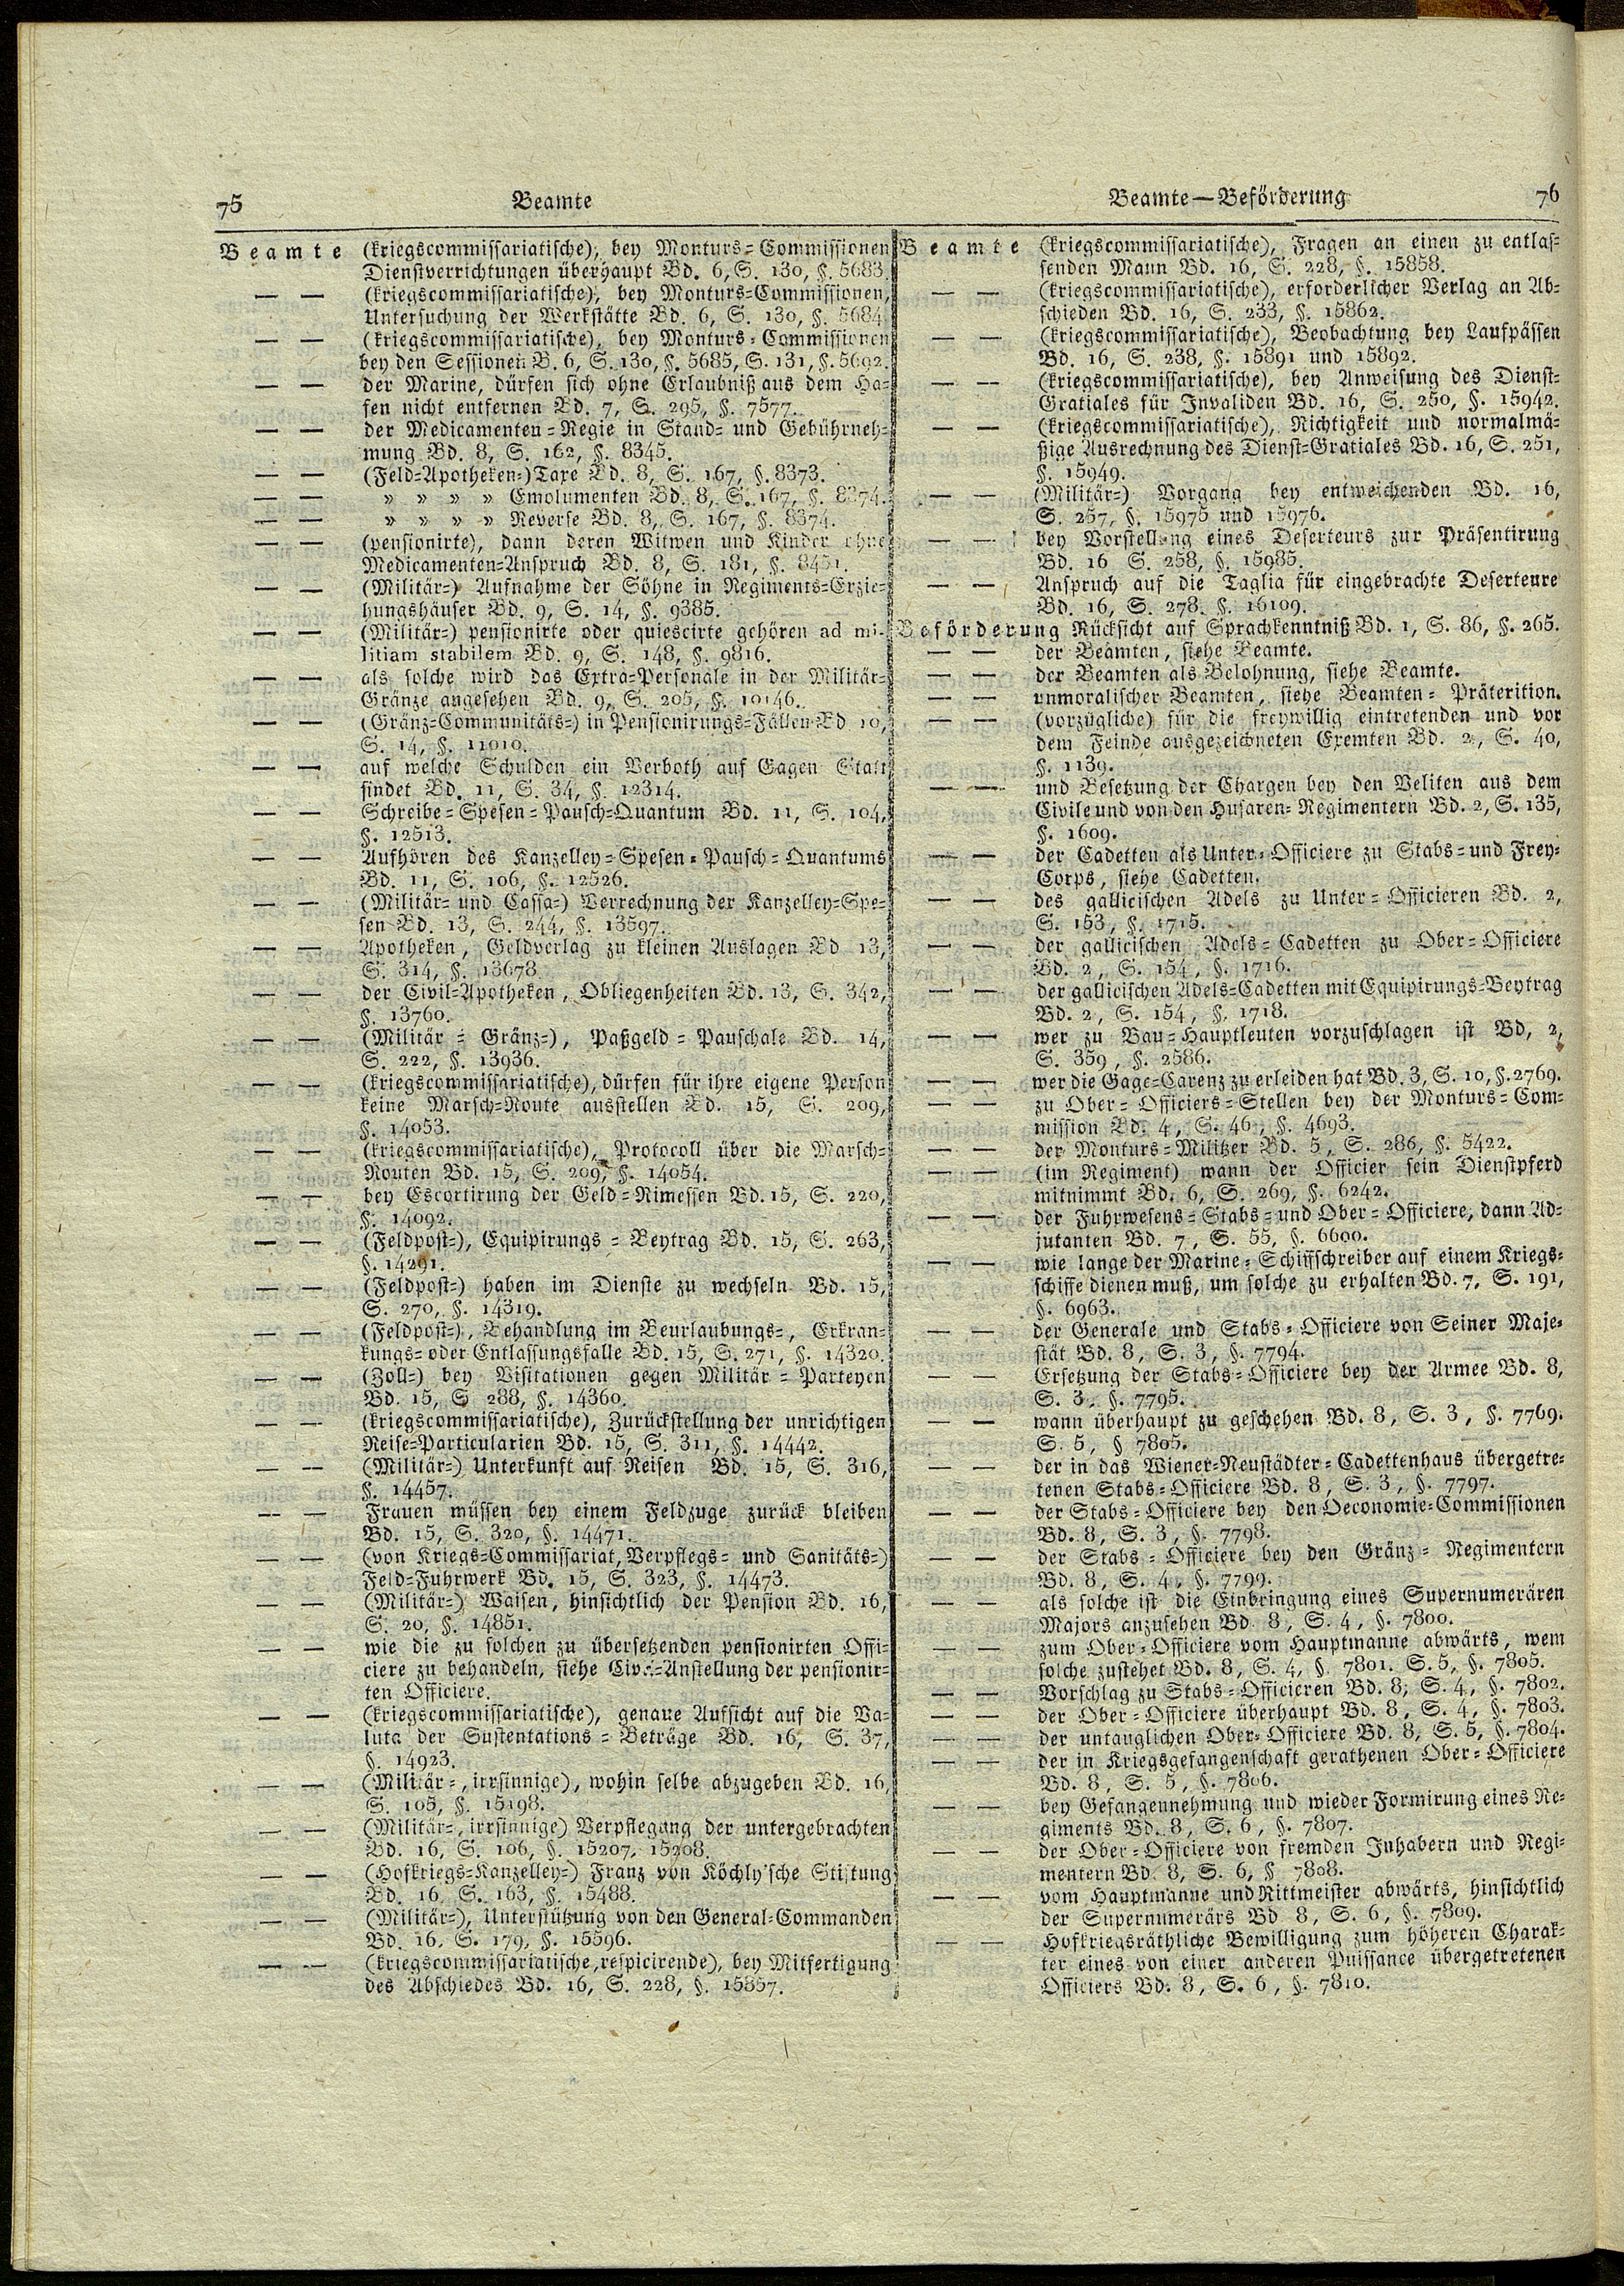 75 Beamte
Beamte (kriegscommissariatische), bey Monturs-Commissionen
Dienstverrichtungen überhaupt Bd. 6, S. 130, §. 5683.
— — (kriegscommissariatische), bey Monturs-Commissionen,
Untersuchung der Werkstätte Bd. 6, S. 130, §. 5684
— — (kriegscommissariatische), bey Monturs-Commissionen
bey den Sessionen B. 6, S. 130, §. 5685, S. 131, §. 5692.
— — der Marine, dürfen sich ohne Erlaubniß aus dem Ha-
fen nicht entfernen Bd. 7, S. 295, §. 7577.
— — der Medicamenten-Regie in Stand- und Gebührneh-
mung Bd. 8, S. 162, §. 8345.
— — (Feld-Apotheken-) Taxe Bd. 8, S. 167, §. 8373.
— — » » » » Emolumenten Bd. 8, S. 167, §. 8374.
— — » » » » Reverse Bd. 8, S. 167, §. 8374.
— — (pensionirte), dann deren Witwen und Kinder ohne
Medicamenten-Anspruch Bd. 8, S. 181, §. 8451.
— — (Militär-) Aufnahme der Söhne in Regiments-Erzie-
hungshäuser Bd. 9, S. 14, §. 9385.
— — (Militär-) pensionirte oder quiescirte gehören ad mi-
litiam stabilem Bd. 9, S. 148, §. 9816.
— — als solche wird das Extra-Personale in der Militär-
Gränze angesehen Bd. 9, S. 205, §. 10146.
— — (Gränz-Communitäts-) in Pensionirungs-Fällen Bd 10,
S. 14, §. 11010.
— — auf welche Schulden ein Verboth auf Gagen Statt
findet Bd. 11, S. 34, §. 12314.
— — Schreibe-Spesen-Pausch-Quantum Bd. 11, S. 104,
§. 12513.
— — Aufhören des Kanzelley-Spesen-Pausch-Quantums
Bd. 11, S. 106, §. 12526.
— — (Militär- und Cassa-) Verrechnung der Kanzelley-Spe-
sen Bd. 13, S. 244, §. 13597.
— — Apotheken, Geldverlag zu kleinen Auslagen Bd 13,
S. 314, §. 13678
— — der Civil-Apotheken, Obliegenheiten Bd. 13, S. 342,
§. 13760.
— — (Militär-Gränz-), Paßgeld-Pauschale Bd. 14,
S. 222, §. 13936.
— — (kriegscommissariatische), dürfen für ihre eigene Person
keine Marsch-Route ausstellen Bd. 15, S. 209,
§. 14053.
— — (kriegscommissariatische), Protocoll über die Marsch-
Routen Bd. 15, S. 209, §. 14054.
— — bey Escortirung der Geld-Rimessen Bd. 15, S. 220,
§. 14092.
— — (Feldpost-), Equipirungs-Beytrag Bd. 15, S. 263,
§. 14291.
— — (Feldpost-) haben im Dienste zu wechseln Bd. 15,
S. 270, §. 14319.
— — (Feldpost-), Behandlung im Beurlaubungs-, Erkran-
kungs- oder Entlassungsfalle Bd. 15, S. 271, §. 14320.
— — (Zoll-) bey Visitationen gegen Militär-Parteyen
Bd. 15, S 288, §. 14360.
— — (kriegscommissariatische), Zurückstellung der unrichtigen
Reise-Particularien Bd. 15, S. 311, §. 14442.
— — (Militär-) Unterkunft auf Reisen Bd. 15, S. 316,
§. 14457.
— — Frauen müssen bey einem Feldzuge zurück bleiben
Bd. 15, S. 320, §. 14471.
— — (von Kriegs-Commissariat, Verpflegs- und Sanitäts-)
Feld-Fuhrwerk Bd. 15, S. 323, §. 14473.
— — (Militär-) Waisen, hinsichtlich der Pension Bd. 16,
S. 20, §. 14851.
— — wie die zu solchen zu übersetzenden pensionirten Offi-
ciere zu behandeln, siehe Civil-Anstellung der pensionir-
ten Officiere.
— — (kriegscommissariatische), genaue Aufsicht auf die Va-
luta der Sustentations-Beträge Bd. 16, S. 37,
§. 14923.
— — (Militär-, irrsinnige), wohin selbe abzugeben Bd. 16,
S. 105, §. 15198.
— — (Militär-, irrsinnige) Verpflegung der untergebrachten
Bd. 16, S. 106, §. 15207, 15208.
— — (Hofkriegs-Kanzelley-) Franz von Köchly'sche Stiftung
Bd. 16, S. 163, §. 15488.
— — (Militär-), Unterstützung von den General-Commanden
Bd. 16, S. 179, §. 15596.
— — (kriegscommissariatische, respicirende), bey Mitfertigung
des Abschiedes Bd. 16, S. 228, §. 15857.
Beamte—Beförderung 76
Beamte (kriegscommissariatische), Fragen an einen zu entlas-
senden Mann Bd. 16, S. 228, §. 15858.
— — (kriegscommissariatische), erforderlicher Verlag an Ab-
schieden Bd. 16, S. 233, §. 15862.
— — (kriegscommissariatische), Beobachtung bey Laufpässen
Bd. 16, S. 238, §. 15891 und 15892.
— — (kriegscommissariatische), bey Anweisung des Dienst-
Gratiales für Invaliden Bd. 16, S. 250, §. 15942.
— — (kriegscommissariatische), Richtigkeit und normalmä-
ßige Ausrechnung des Dienst-Gratiales Bd. 16, S. 251,
§. 15949.
— — (Militär-) Vorgang bey entweichenden Bd. 16,
S. 257, §. 15975 und 15976.
— — bey Vorstellung eines Deserteurs zur Präsentirung
Bd. 16 S. 258, §. 15985.
— — Anspruch auf die Taglia für eingebrachte Deserteure
Bd. 16, S. 278. §. 16109.
Beförderung Rücksicht auf Sprachkenntniß Bd. 1, S. 86, §. 265.
— — der Beamten, siehe Beamte.
— — der Beamten als Belohnung, siehe Beamte.
— — unmoralischer Beamten, siehe Beamten-Präterition.
— — (vorzügliche) für die freywillig eintretenden und vor
dem Feinde ausgezeichneten Exemten Bd. 2, S. 40,
§. 1139.
— — und Besetzung der Chargen bey den Veliten aus dem
Civile und von den Husaren-Regimentern Bd. 2, S. 135,
§. 1609.
— — der Cadetten als Unter-Officiere zu Stabs- und Frey-
Corps, siehe Cadetten.
— — des gallicischen Adels zu Unter-Officieren Bd. 2,
S. 153, §. 1715.
— — der gallicischen Adels-Cadetten zu Ober-Officiere
Bd. 2, S. 154, §. 1716.
— — der gallicischen Adels-Cadetten mit Equipirungs-Beytrag
Bd. 2, S. 154, §. 1718.
— — wer zu Bau-Hauptleuten vorzuschlagen ist Bd, 2,
S. 359, §. 2586.
— — wer die Gage-Carenz zu erleiden hat Bd. 3, S. 10, §. 2769.
— — zu Ober-Officiers-Stellen bey der Monturs-Com-
mission Bd. 4, S. 46, §. 4693.
— — der Monturs-Militzer Bd. 5, S. 286, §. 5422.
— — (im Regiment) wann der Officier sein Dienstpferd
mitnimmt Bd. 6, S. 269, §. 6242.
— — der Fuhrwesens-Stabs- und Ober-Officiere, dann Ad-
jutanten Bd. 7, S. 55, §. 6600.
— — wie lange der Marine-Schiffschreiber auf einem Kriegs-
schiffe dienen muß, um solche zu erhalten Bd. 7, S. 191,
§. 6963.
— — der Generale und Stabs-Officiere von Seiner Maje-
stät Bd. 8, S. 3, §. 7794.
— — Ersetzung der Stabs-Officiere bey der Armee Bd. 8,
S. 3, §. 7795.
— — wann überhaupt zu geschehen Bd. 8, S. 3, §. 7769.
S. 5, § 7805.
— — der in das Wiener-Neustädter-Cadettenhaus übergetre-
tenen Stabs-Officiere Bd. 8, S. 3, §. 7797.
— — der Stabs-Officiere bey den Oeconomie-Commissionen
Bd. 8, S. 3, §. 7798.
— — der Stabs-Officiere bey den Gränz-Regimentern
Bd. 8, S. 4, §. 7799.
— — als solche ist die Einbringung eines Supernumerären
Majors anzusehen Bd. 8, S. 4, §. 7800.
— — zum Ober-Officiere vom Hauptmanne abwärts, wem
solche zustehet Bd. 8, S. 4, §. 7801. S. 5, §. 7805.
— — Vorschlag zu Stabs-Officieren Bd. 8, S. 4, §. 7802.
— — der Ober-Officiere überhaupt Bd. 8, S. 4, §. 7803.
— — der untauglichen Ober-Officiere Bd. 8, S. 5, §. 7804.
— — der in Kriegsgefangenschaft gerathenen Ober-Officiere
Bd. 8, S. 5, §. 7806.
— — bey Gefangennehmung und wieder Formirung eines Re-
giments Bd. 8, S. 6, §. 7807.
— — der Ober-Officiere von fremden Inhabern und Regi-
mentern Bd. 8, S. 6, § 7808.
— — vom Hauptmanne und Rittmeister abwärts, hinsichtlich
der Supernumerärs Bd 8, S. 6, §. 7809.
— — Hofkriegsräthliche Bewilligung zum höheren Charak-
ter eines von einer anderen Puissance übergetretenen
Officiers Bd. 8, S. 6, §. 7810.